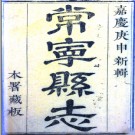 嘉慶庚申新輯
常寧縣志
本署藏板